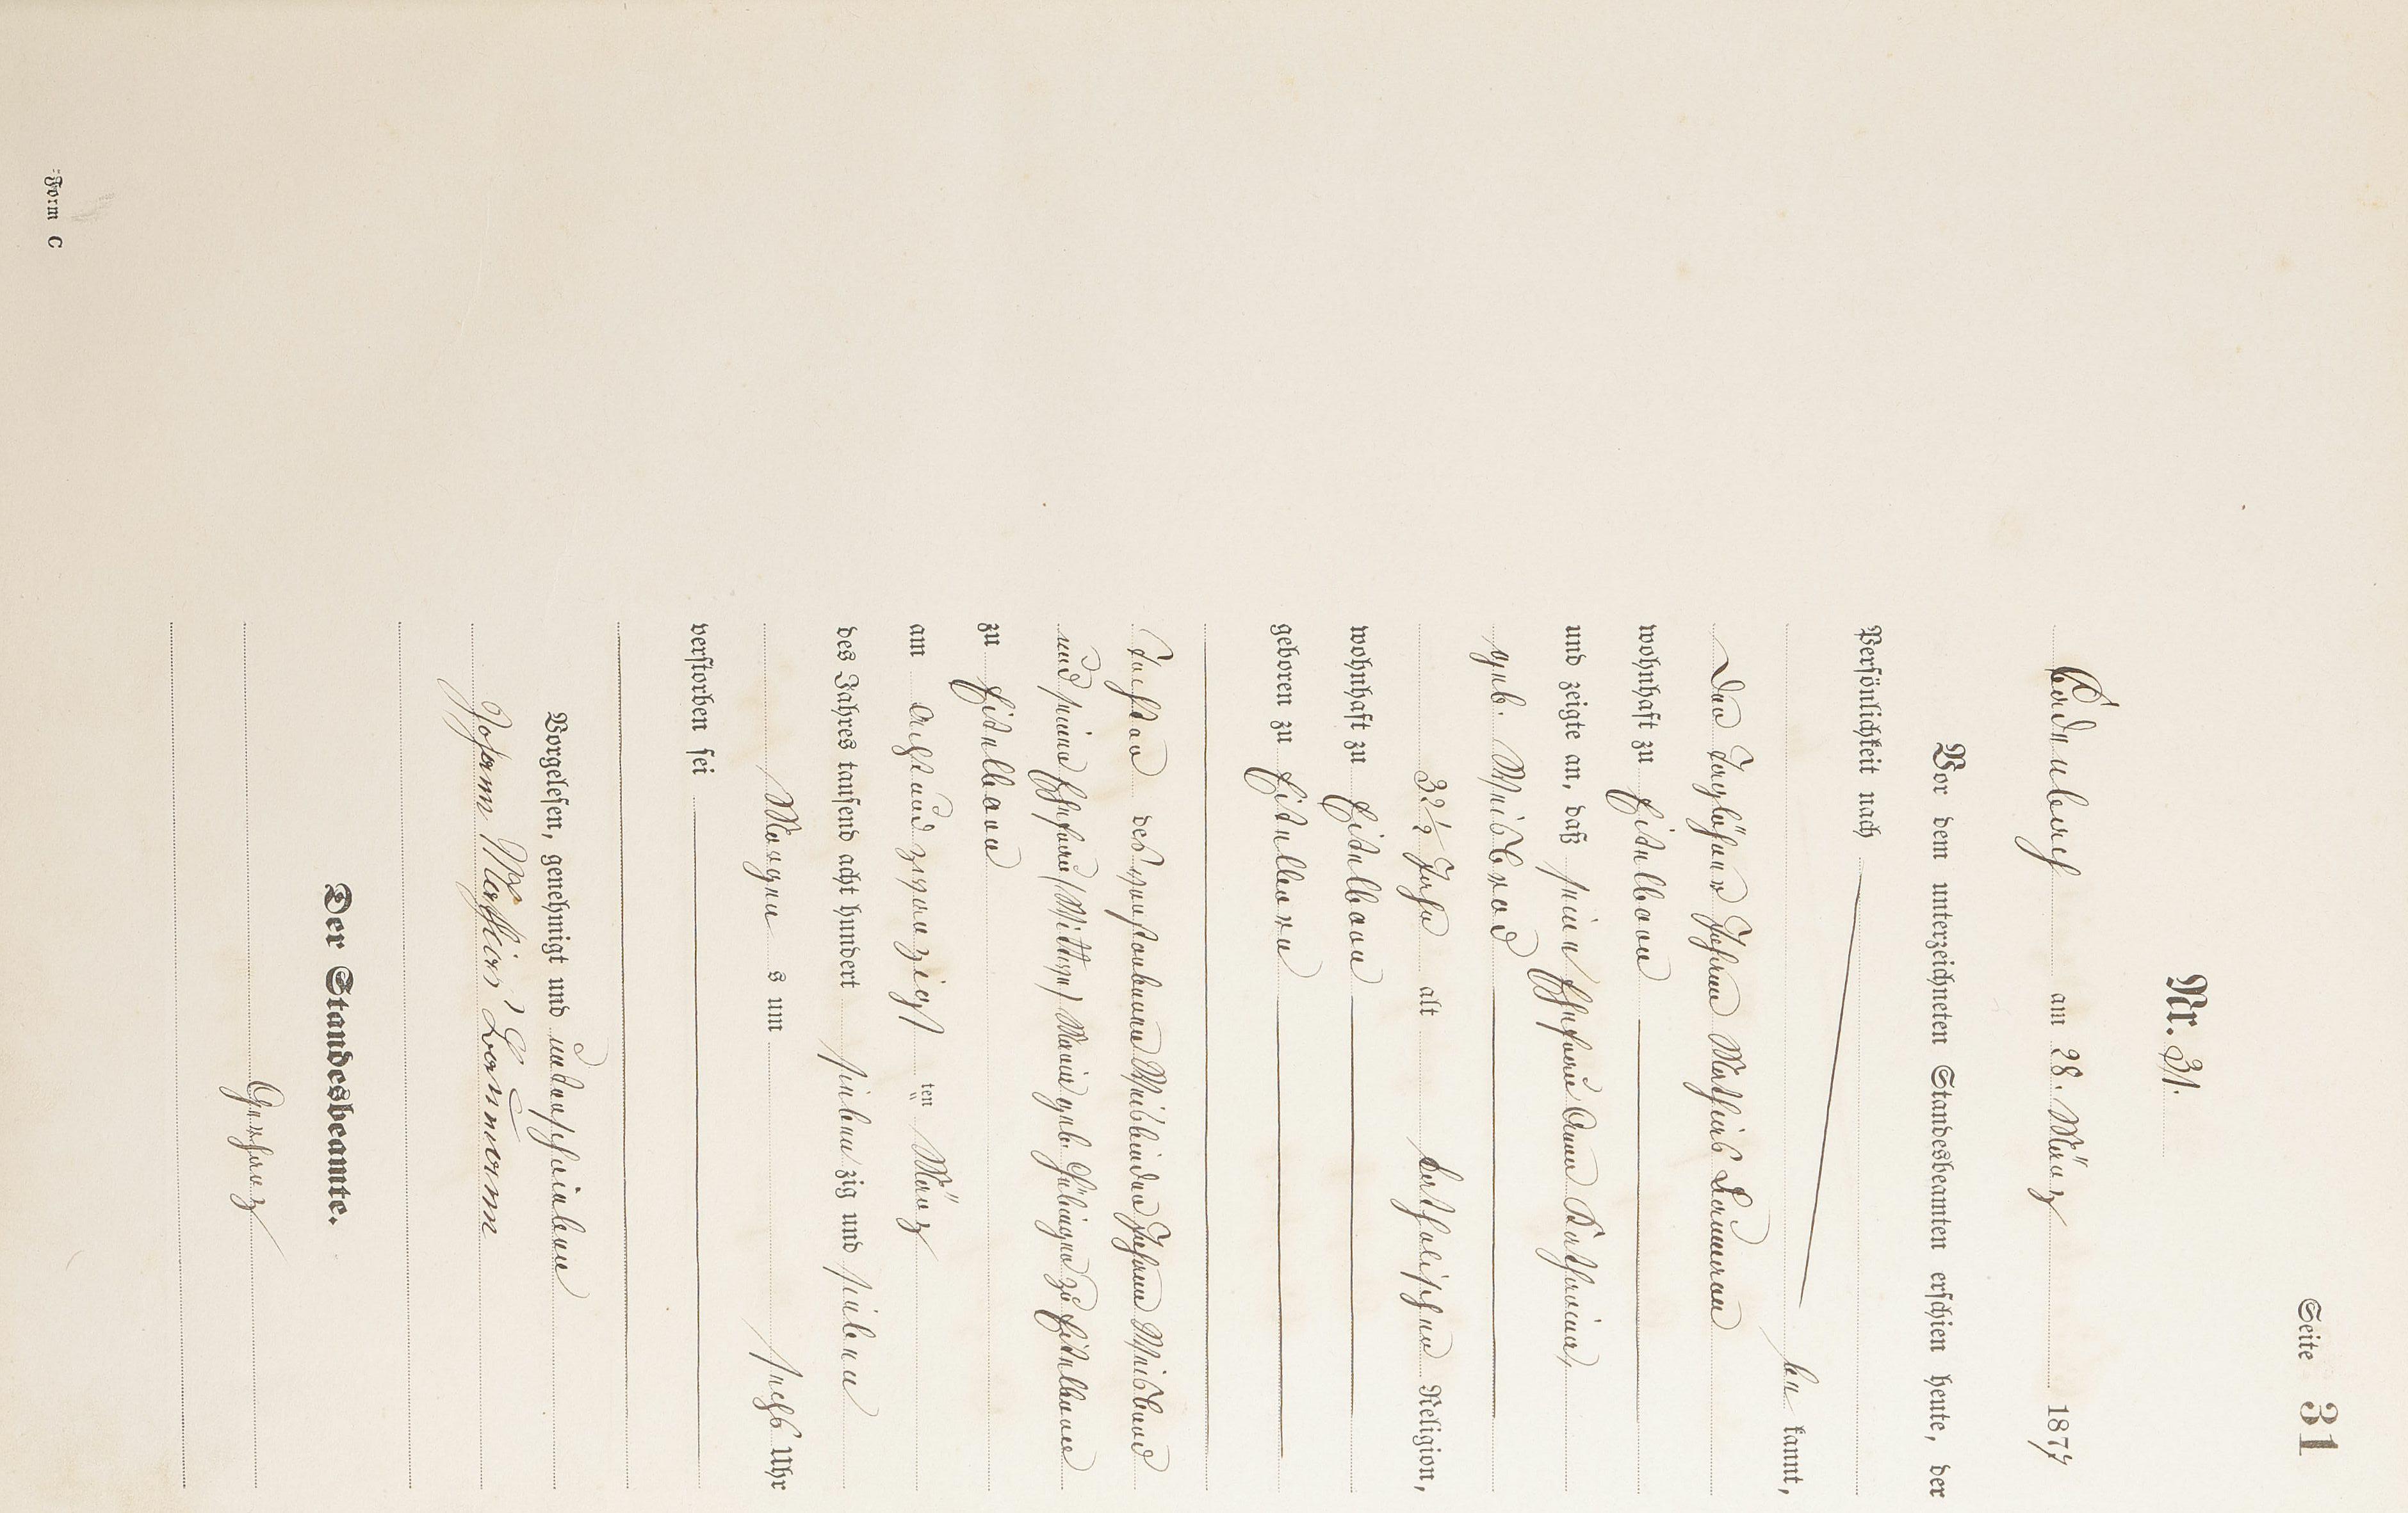 Seite 31
Nr. 31.
Badenbach am 28. März 1877
Vor dem unterzeichneten Standesbeamten erschien heute, der
Persönlichkeit nach
be kannt,
der Taglöhner Johann Mathias Laumann
wohnhaft zu Eitelborn
und zeigte an, daß seine Ehefrau Anna Katharina,
geb.
32½ Jahr alt katholischer Religion,
wohnhaft zu Eitelborn
geboren zu Eitelborn
Tochter des verstorbenen Johann
und seiner Ehefrau (Wittwe) Maria geb. zu Eitelborn
zu Eitelborn
am achtundzwanzigsten März
des Jahres tausend acht hundert sieben zig und sieben
Morgen s um sechs Uhr
verstorben sei
Vorgelesen, genehmigt und unterschrieben
Johann Mathias Laumann
Der Standesbeamte.
Gerharz
Form C